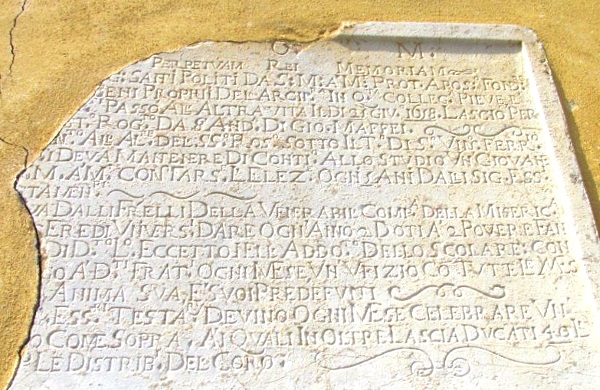 O M:
PERPETUAM REI MEMORIAM
SANTI POLITI DA S: M: A M: PROT: APOS: FOND:
ENI PROPRII DEL ARCIP: IN QV COLLEG: PIEVE E
PASSÒ ALL ALTRA VITA IL DI 1618. LASCIÒ PER
T. ROG: DA S: AND: DI GIO: MAFFEI.
NT: ALL AL: DEL SS: ROS: SOTTO IL T. DI S: VIN: FERR:
I DEVA MANTENERE DI CONTI: ALLO STUDIO UN GIOVANE
M. A M. CON TARS: L ELEZ: OGNI ANI DALLI SIG: ESS:
TAMEN
DALLI FRELLI DELLA VENERABIL COMP: DELLA MISERIC:
EREDI UNIVERS: DARE OGNI ANNO 2 DOTI A 2 POVERE FAN
DI D: L: ECCETTO NELL ADDO: DELLO SCOLARE: CON
O A D: FRAT: OGNI MESE UN UFIZIO CO TUTTE LE MES
ANIMA SUA, E SUOI PREDEFUNTI
ESS: TESTA: DEVINO OGNI MESE CELEBRARE VII
O COME SOPRA, AI QUALI IN OLTRE LASCIA DUCATI
LE DISTRIB. DEL CORO.